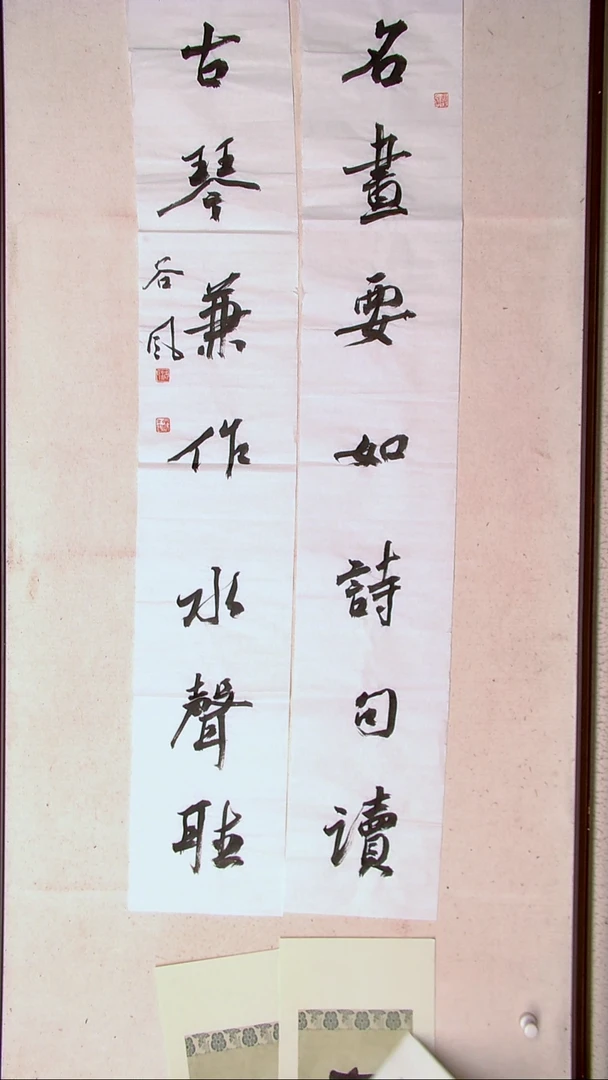 名畫要如詩句讀
古琴兼作水聲聽
谷風